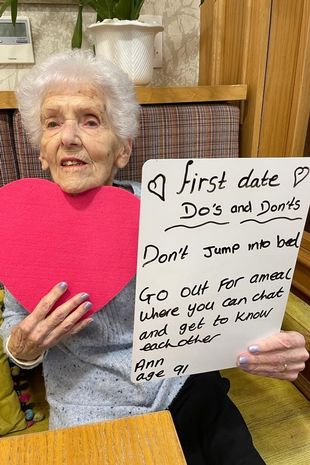 first date
Do's and Don'ts
Don't Jump into bed
Go out for a meal
where you can chat
and get to know
eachother
Ann
age 91